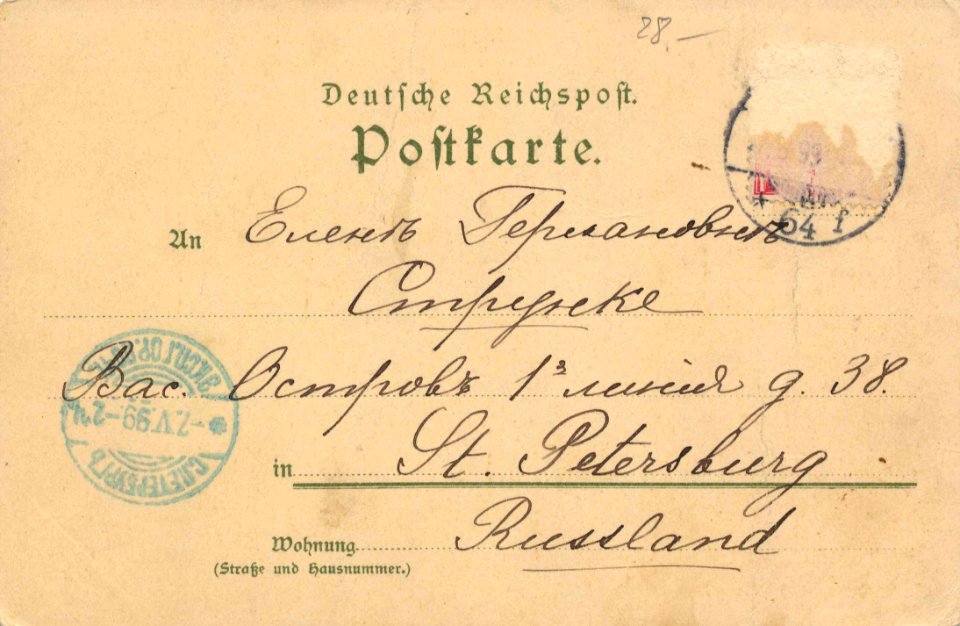 28.—
Deutsche Reichspost.
Postkarte.
99
64 f
An Еленѣ Германовнѣ
Струнске
Вас. Островъ 1ᵃ линія д. 38.
С.ПЕТЕРБУРГЪ
2.V.99
in St. Petersburg
Wohnung Russland
(Straße und Hausnummer.)